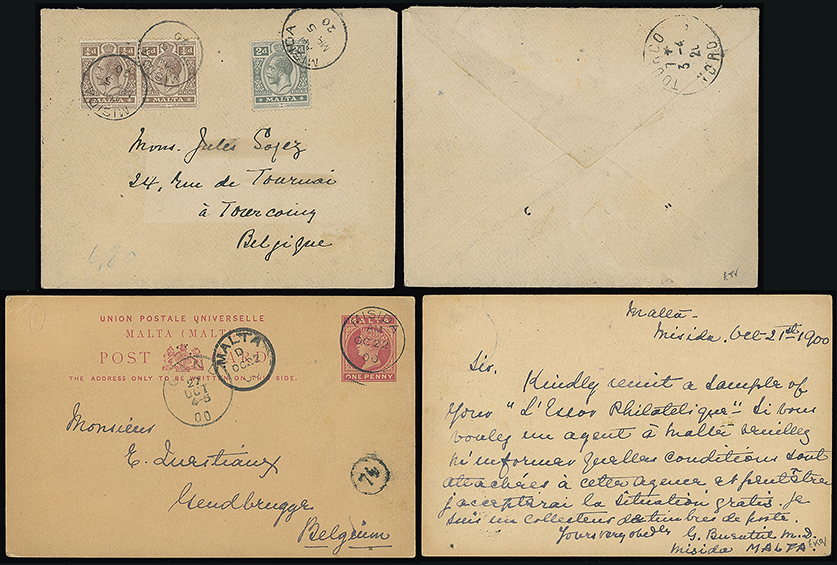 ½d ½d
MALTA MALTA
MISIDA
2d 2d
MALTA
20
Mons. Jules
24, rue de Tournai
à Tourcoing
Belgique
TOURCO
NORD
7*
3-4
EKV
UNION POSTALE UNIVERSELLE
MALTA (MALT
POST
THE ADDRESS ONLY TO BE WRITTEN ON THIS SIDE.
ONE PENNY
MISIDA
AM
OC 22
00
MALTA
D
OC 22
27
OCT
4-5
00
Monsieur
E. Questiaux
Gendbrugge
Belgium
Malta
Misida, Oct 21st 1900
Sir.
Kindly remit a sample of
your "L'Essor Philatelique" Si vous
voulez un agent à malte veuillez
m'informer quelles conditions sont
attachées à cette agence et peut être
j'accepterai la situation gratis. Je
suis un collecteur de timbres de poste.
Yours very obedly
G. M.D.
Misida MALTA
EKV